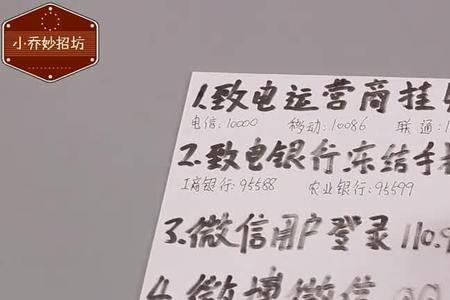 小乔妙招坊
1.致电运营商挂
电信:10000 移动:10086 联通:1
2.致电银行冻结手
工商银行:95588 农业银行:95599
3.微信用户登录110.
4.微博微信